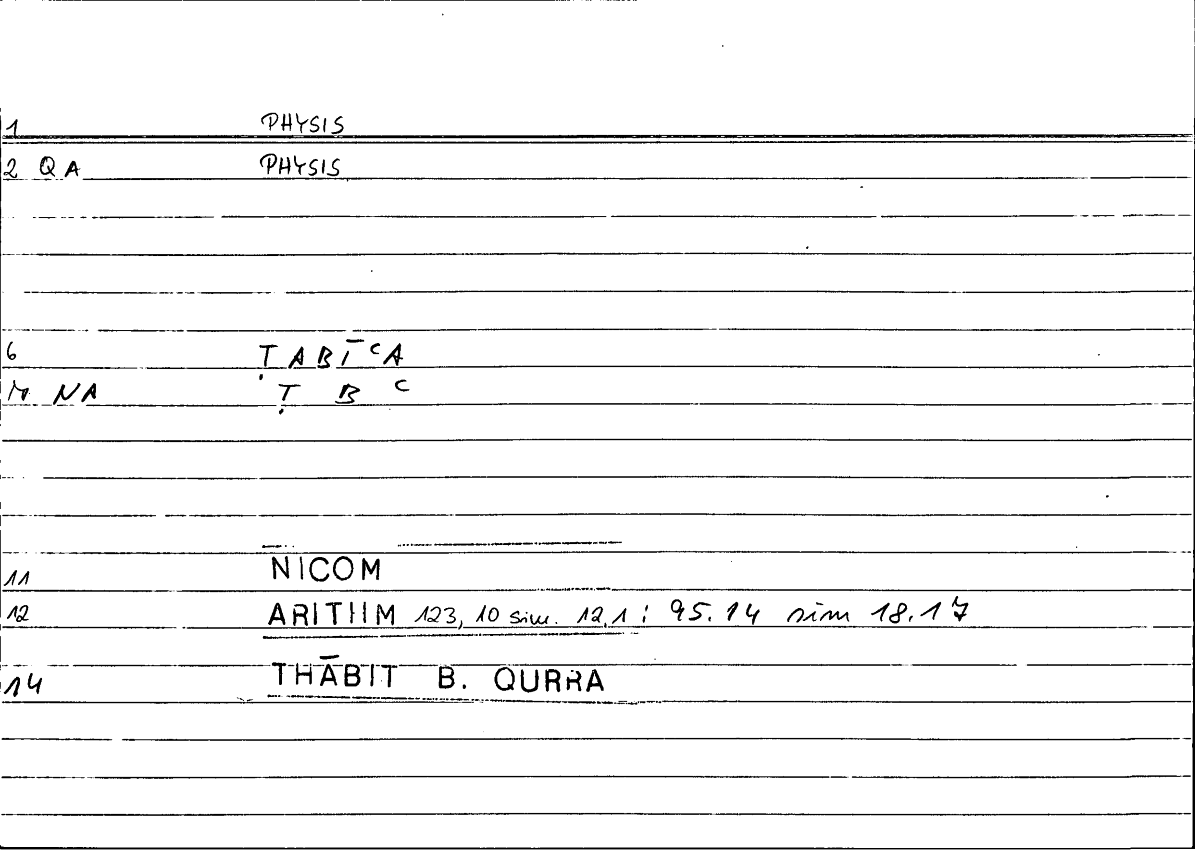 1 PHYSIS
2 QA PHYSIS
6 ṬABĪᶜA
NA Ṭ B ᶜ
11 NICOM
12 ARITHM 123, 10 sim. 12,1 ; 95.14 sim 18.17
14 THĀBIT B. QURRA